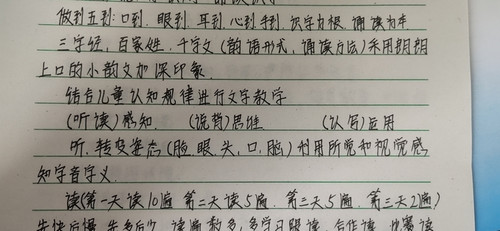 做到五到:口到、眼到、耳到、心到、手到,识字为根、诵读为本
三字经、百家姓、千字文(韵语形式,诵读方法)采用朗朗
上口的小韵文加深印象
结合儿童认知规律进行文字教学
(听读)感知 (说背)思维 (认写)应用
听、转变姿态(脸、眼、头、口、脑)利用听觉和视觉感
知字音字义
读(第一天读10遍 第二天读5遍、第三天5遍、第三天2遍)
先快后慢、先多后少、读遍数多,多学习跟读、合作读、比赛读